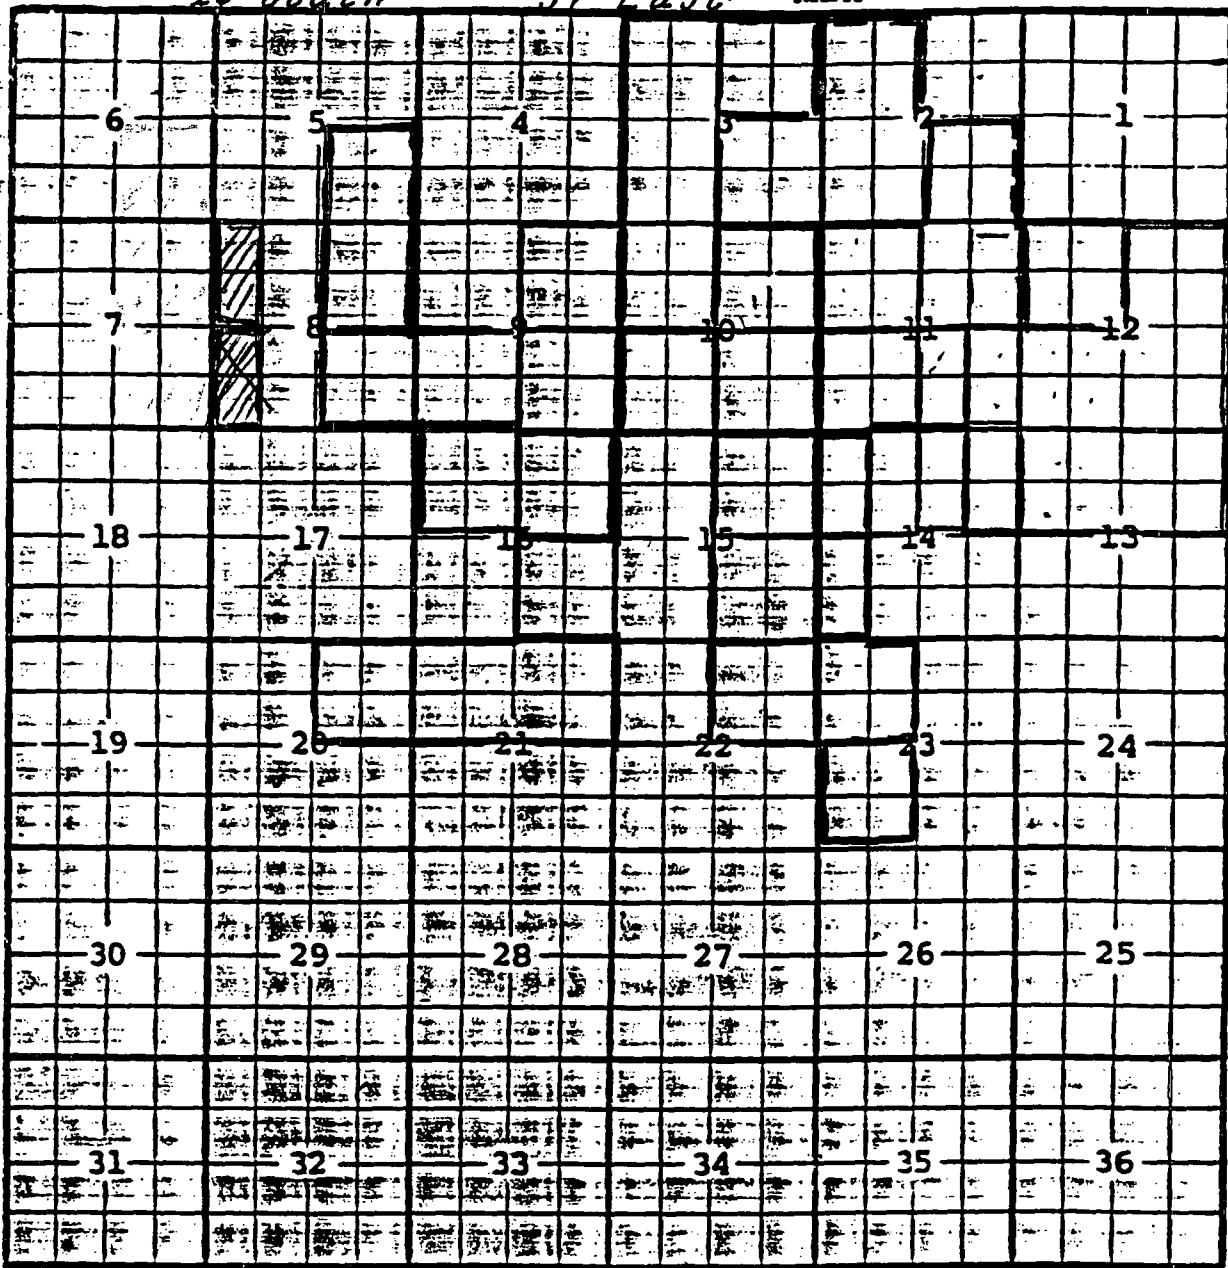 South East
6 5 4 3 2 1
7 8 9 10 11 12
18 17 16 15 14 13
19 20 21 22 23 24
30 29 28 27 26 25
31 32 33 34 35 36